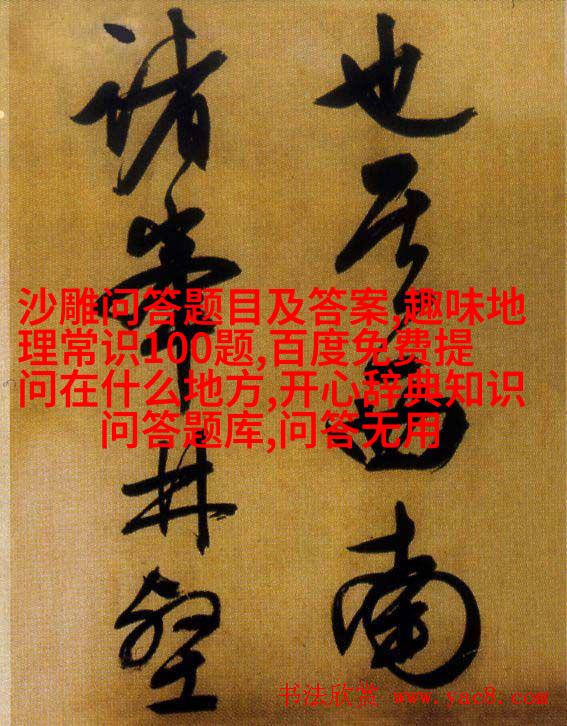 也其西南
诸峰林壑
沙雕问答题目及答案,趣味地
理常识100题,百度免费提
问在什么地方,开心辞典知识
问答题库,问答无用
书法欣赏 www.yac8.com